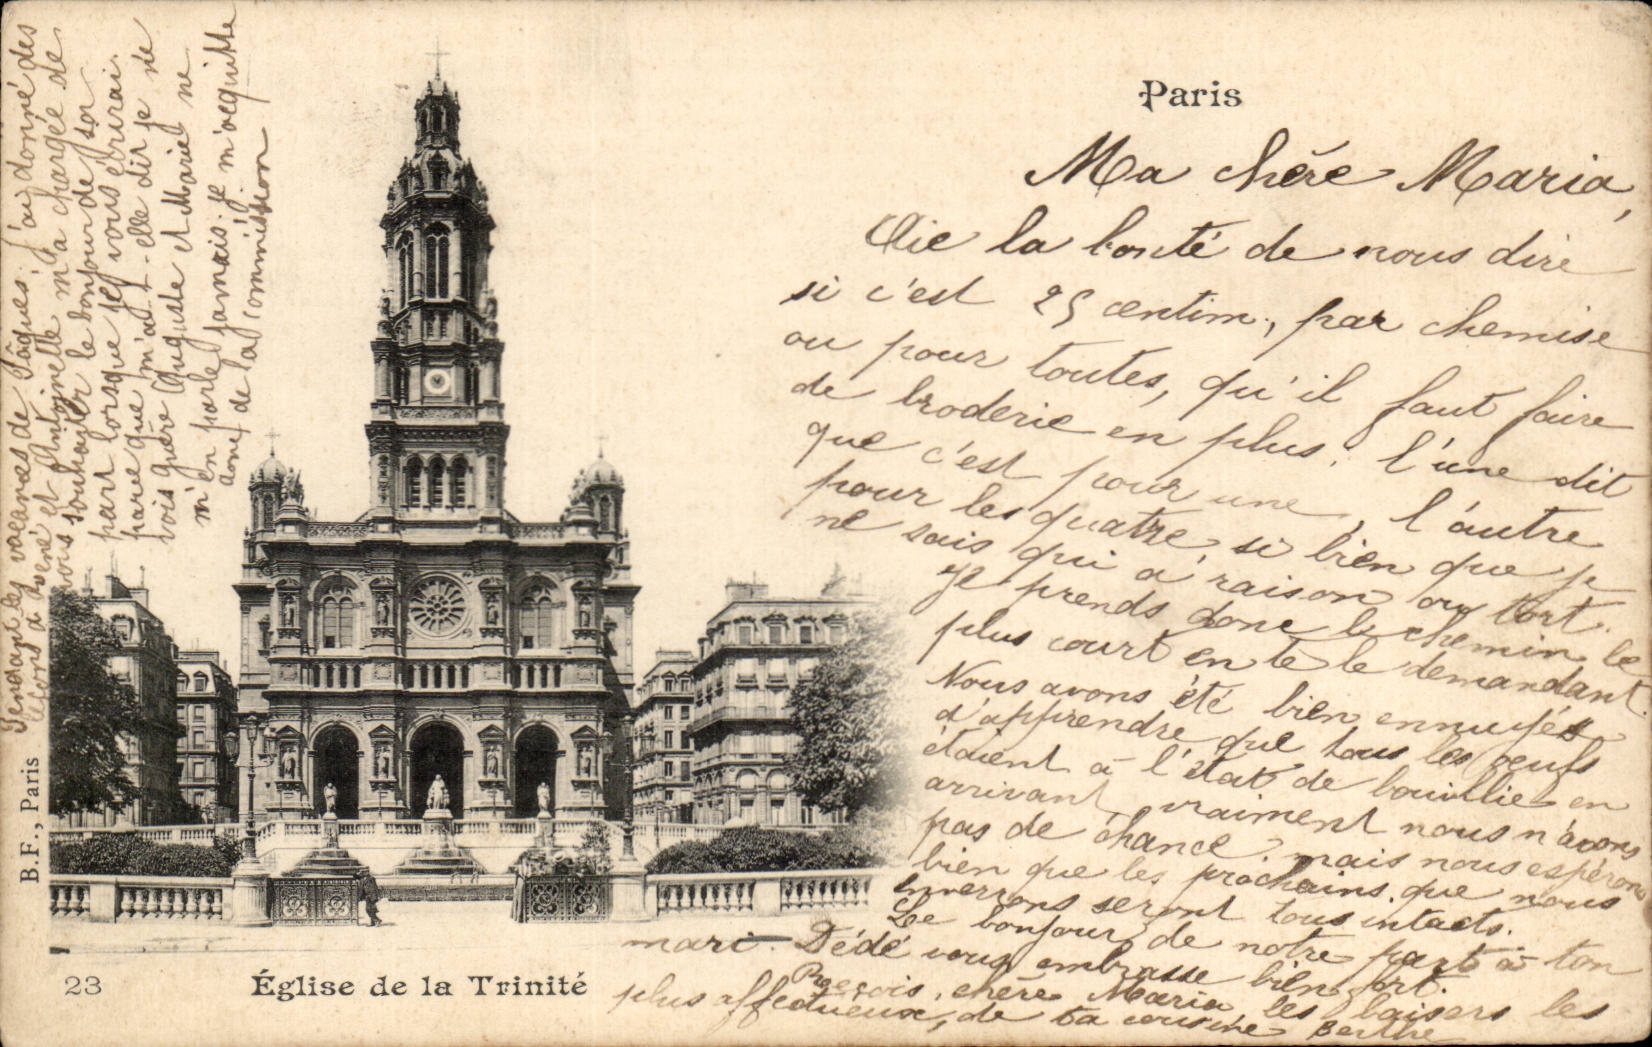 Paris
Ma chère Maria,
Aie la bonté de nous dire
si c'est 25 centim., par chemise
ou pour toutes, qu'il faut faire
de broderie en plus; l'une dit
que c'est pour une, l'autre
pour les quatre, si bien que je
ne sais qui a raison ou tort.
Je prends donc le chemin le
plus court en te le demandant.
Nous avons été bien ennuyés
d'apprendre que tous les oeufs
étaient à l'état de bouillie en
arrivant, vraiment nous n'avons
pas de chance, mais nous espérons
bien que les prochains que nous
enverrons seront tous intacts.
Le bonjour de notre part à ton
mari - Dédé vous embrasse bien fort.
Reçois, chère Maria les baisers les
plus affectueux, de ta cousine Berthe
Pendant les vacances de Pâques, j'ai donné des
leçons à et Antoinette m'a chargée de
vous souhaiter le bonjour de son
part lorsque je vous écrirai.
parce que m'a-t-elle dit je ne
vois guère Auguste et Marie ne
m'en parle jamais; je m'acquitte
donc de la commission
B.F., Paris
23
Église de la Trinité